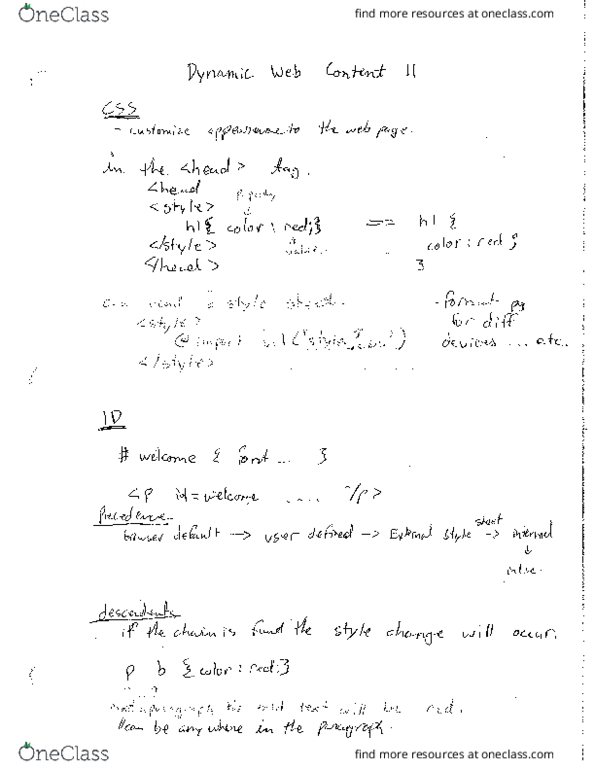 OneClass
find more resources at oneclass.com
Dynamic Web Content II
CSS
- customize appearance to the web page.
in the <head> tag.
<head
property
<style>
h1{ color : red;} == h1 {
</style> value. color : red ;
</head> }
style sheet. - format pg
<style> for diff
@ import url ("style devices ... etc..
</style>
ID
# welcome { font ... }
<p id = welcome ..... /p>
Precedence
browser default -> user defined -> External style sheet -> internal
inline.
descendents
if the chain is fund the style change will occur.
p b { color : red; }
paragraph text will be red.
can be anywhere in the paragraph.
OneClass
find more resources at oneclass.com